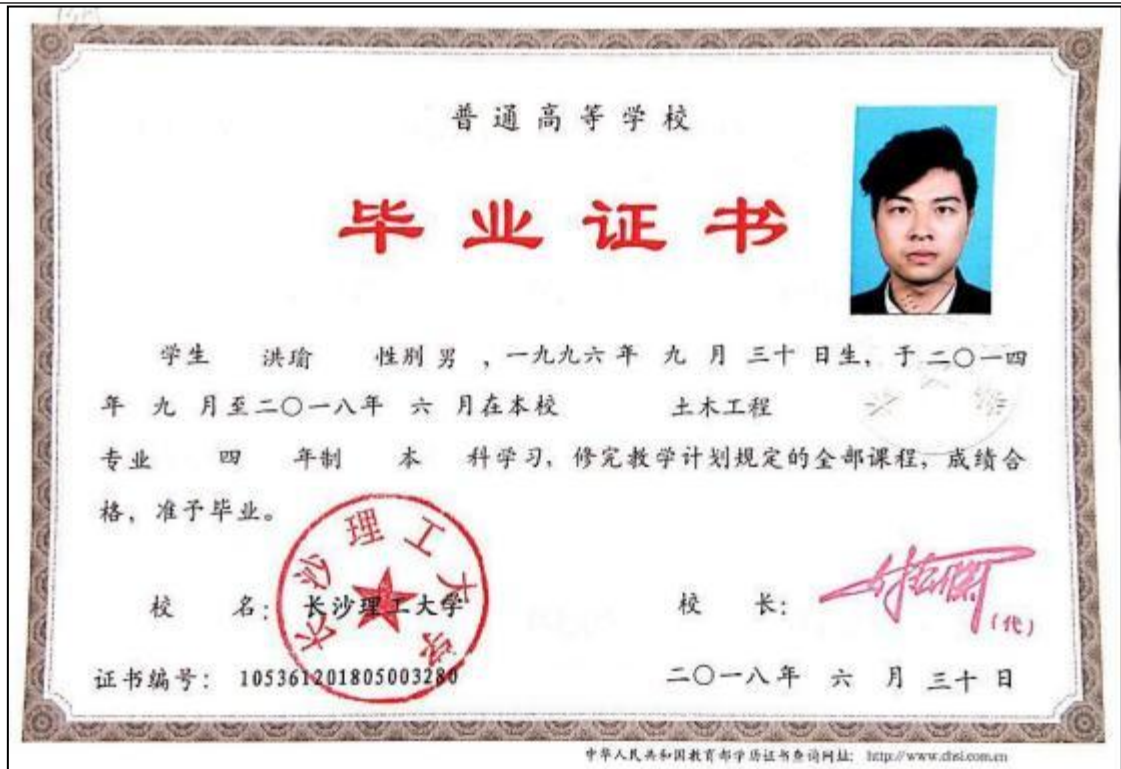 普通高等学校
毕业证书
学生 洪瑜 性别 男 ，一九九六年 九 月 三十 日生，于二〇一四
年 九 月至二〇一八年 六 月在本校 土木工程
专业 四 年制 本 科学习，修完教学计划规定的全部课程，成绩合
格，准予毕业。
长沙理工大学
校 名：长沙理工大学
校 长：
(代)
证书编号：105361201805003280
二〇一八年 六 月 三十 日
中华人民共和国教育部学历证书查询网址：http://www.chsi.com.cn